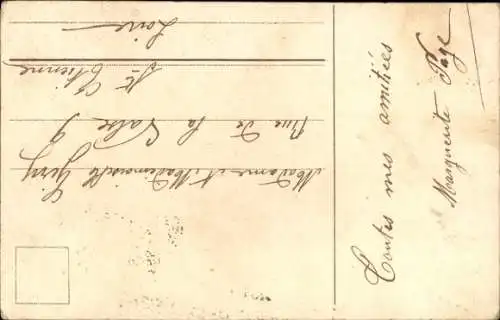 Toutes mes amitiées
Marguerite Page
Madame et Mademoiselle Giry
Rue De la Valse 9
St Etienne
Loire